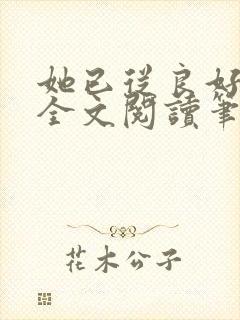 她已從良好
全文閱讀筆
花木公子